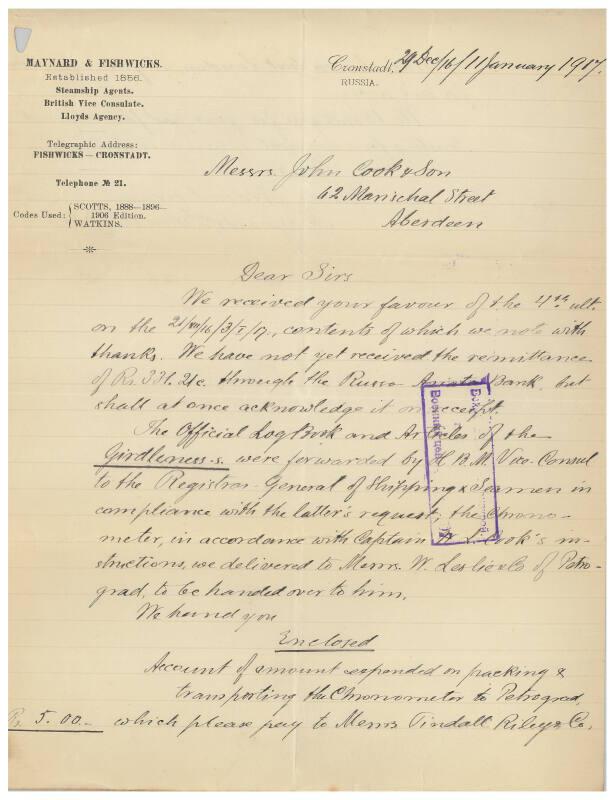 MAYNARD & FISHWICKS.
Established 1856.
Steamship Agents.
British Vice Consulate.
Lloyds Agency.
Telegraphic Address:
FISHWICKS — CRONSTADT.
Telephone № 21.
Codes Used: SCOTTS, 1888—1896—
1906 Edition.
WATKINS.
Cronstadt, 29 Dec/16/11 January 1917.
RUSSIA.
Messrs. John Cook & Son
62 Marischal Street
Aberdeen
Dear Sirs
We received your favour of the 4th ult.
on the 21/XII/16/3/I/17, contents of which we note with
thanks. We have not yet received the remittance
of Rs. 331. 21c. through the Russo Asiatic Bank, but
shall at once acknowledge it on receipt.
The Official Log Book and Articles of the
Girdleness-s. were forwarded by H. B. M. Vice-Consul
to the Registrar General of Shipping & Seamen in
compliance with the latter's request; the Chrono-
meter, in accordance with Captain Cook's in-
structions, we delivered to Messrs. W. Leslie & Co of Petro-
grad, to be handed over to him.
We hand you
Enclosed
Account of amount expended on packing &
transporting the Chronometer to Petrograd,
Rs. 5.00.— which please pay to Messrs. Tindall Riley & Co.